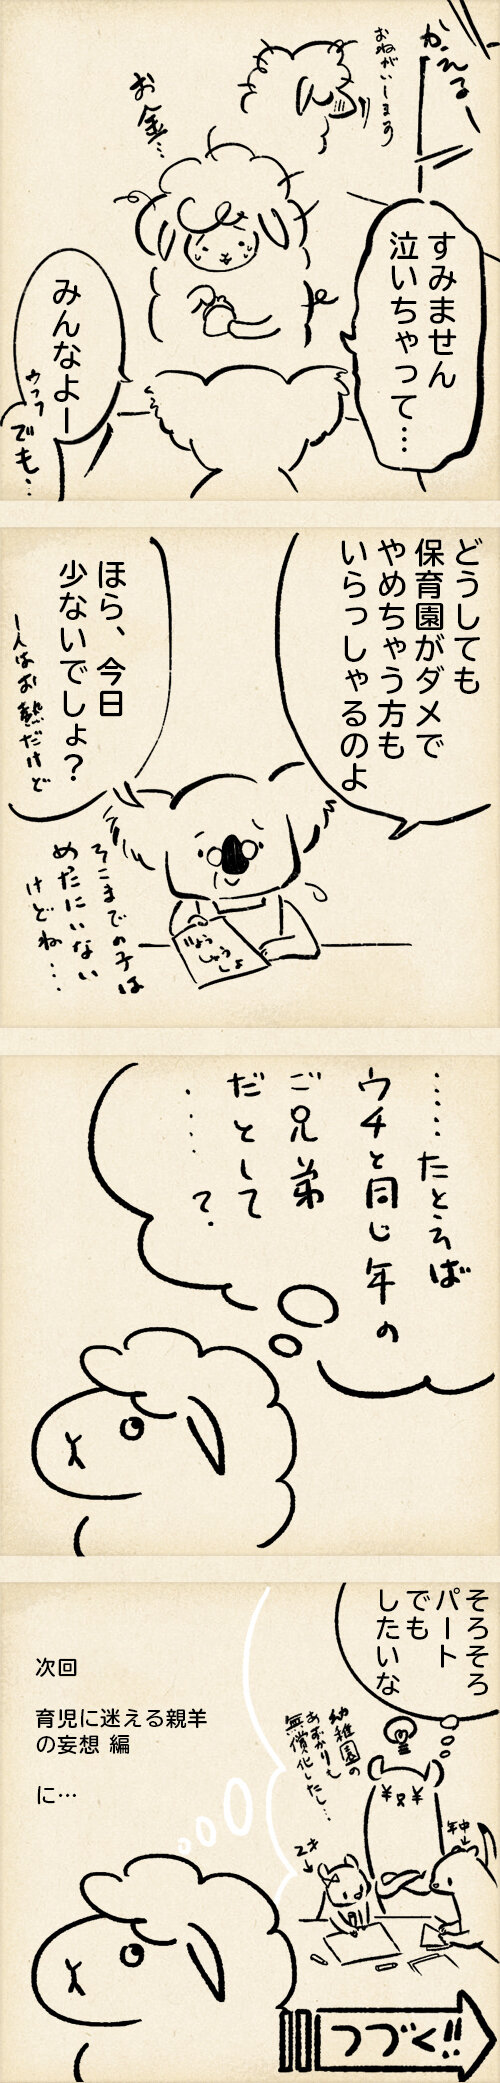 かえるー
おねがいします
お金…
すみません
泣いちゃって…
みんなよー
ウフフ
でも…
どうしても
保育園がダメで
やめちゃう方も
いらっしゃるのよ
ほら、今日
少ないでしょ？
1人はお熱だけど
そこまでの子は
めったにいない
けどね…
じょう
しゅう
しょ
……たとえば
ウチと同じ年の
ご兄弟
だとして
……？
そろそろ
パート
でも
したいな
幼稚園の
あずかりも
無償化したし…
¥ ¥
2才
年中
次回
育児に迷える親羊
の妄想 編
に…
つづく!!